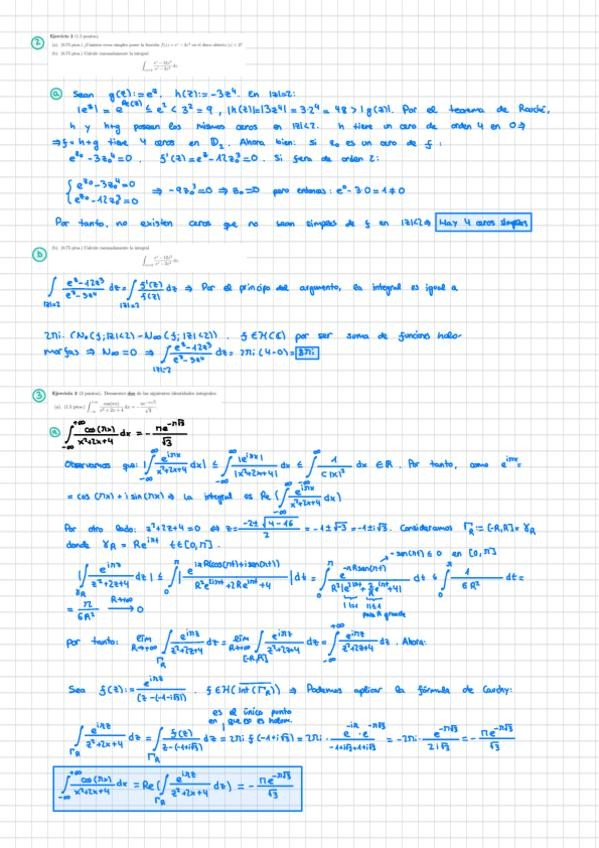 2 Ejercicio 2 (1.5 puntos).
(a) (0.75 ptos.) ¿Cuántos ceros simples posee la función f(z) = e^z − 3z^4 en el disco abierto |z| < 2?
(b) (0.75 ptos.) Calcule razonadamente la integral
∫_{|z|=2} (e^z − 12z^3)/(e^z − 3z^4) dz.
a Sean g(z) := e^z, h(z) := -3z^4. En |z|=2:
|e^z| = e^{Re(z)} ≤ e^2 < 3^2 = 9, |h(z)| = |3z^4| = 3·2^4 = 48 > |g(z)|. Por el teorema de Rouché,
h y h+g poseen los mismos ceros en |z|<2. h tiene un cero de orden 4 en 0 ⇒
⇒ f = h+g tiene 4 ceros en D_2. Ahora bien: si z_0 es un cero de f:
e^{z_0} - 3z_0^4 = 0. f'(z) = e^z - 12z^3 = 0. Si fuera de orden 2:
{ e^{z_0} - 3z_0^4 = 0
{ e^{z_0} - 12z_0^3 = 0 ⇒ -9z_0^3 = 0 ⇒ z_0 = 0 pero entonces: e^0 - 3·0 = 1 ≠ 0
Por tanto, no existen ceros que no sean simples de f en |z|<2 ⇒ Hay 4 ceros simples
b (b) (0.75 ptos.) Calcule razonadamente la integral
∫_{|z|=2} (e^z − 12z^3)/(e^z − 3z^4) dz.
∫_{|z|=2} (e^z - 12z^3)/(e^z - 3z^4) dz = ∫_{|z|=2} f'(z)/f(z) dz ⇒ Por el principio del argumento, la integral es igual a
2πi · (N_0(f; |z|<2) - N_∞(f; |z|<2)). f ∈ H(C) por ser suma de funciones holo-
morfas ⇒ N_∞ = 0 ⇒ ∫_{|z|=2} (e^z - 12z^3)/(e^z - 3z^4) dz = 2πi (4-0) = 8πi
3 Ejercicio 3 (3 puntos). Demuestre dos de las siguientes identidades integrales:
(a) (1.5 ptos.) ∫_{-∞}^{+∞} cos(πx)/(x^2+2x+4) dx = −πe^{-π√3}/√3.
a ∫_{-∞}^{+∞} cos(πx)/(x^2+2x+4) dx = - πe^{-π√3}/√3
Observamos que: |∫_{-∞}^{+∞} e^{iπx}/(x^2+2x+4) dx| ≤ ∫_{-∞}^{+∞} |e^{iπx}|/|x^2+2x+4| dx ≤ ∫_{-∞}^{+∞} 1/(C|x|^2) dx ∈ R. Por tanto, como e^{iπx} =
= cos(πx) + i sin(πx) ⇒ la integral es Re(∫_{-∞}^{+∞} e^{iπx}/(x^2+2x+4) dx)
Por otro lado: z^2+2z+4 = 0 ⇔ z = (-2±√(4-16))/2 = -1±√-3 = -1±i√3. Consideramos Γ_R := [-R,R] ∪ γ_R
donde γ_R = Re^{iπt} t ∈ [0,π].
-sin(πt) ≤ 0 en [0,π]
|∫_{γ_R} e^{iπz}/(z^2+2z+4) dz| ≤ ∫_0^π |e^{iπR(cos(πt)+isen(πt))}/(R^2e^{2iπt}+2Re^{iπt}+4)| dt = ∫_0^π e^{-πRsen(πt)}/(R^2|e^{2iπt}+2/R e^{iπt}+4|) dt ≤ ∫_0^π 1/(6R^2) dt =
= π/(6R^2) → 0 R→+∞
para R grande
Por tanto: lim_{R→+∞} ∫_{Γ_R} e^{iπz}/(z^2+2z+4) dz = lim_{R→+∞} ∫_{[-R,R]} e^{iπz}/(z^2+2z+4) dz = ∫_{-∞}^{+∞} e^{iπz}/(z^2+2z+4) dz. Ahora:
Sea f(z) := e^{iπz}/(z-(-1-i√3)). f ∈ H(Int(Γ_R)) ⇒ Podemos aplicar la fórmula de Cauchy:
es el único punto
en que no es holom.
∫_{Γ_R} e^{iπz}/(z^2+2z+4) dz = ∫_{Γ_R} f(z)/(z-(-1+i√3)) dz = 2πi f(-1+i√3) = 2πi · e^{-iπ}·e^{-π√3}/(-1+i√3+1+i√3) = -2πi · e^{-π√3}/(2i√3) = - πe^{-π√3}/√3
∫_{-∞}^{+∞} cos(πx)/(x^2+2x+4) dx = Re(∫_{Γ_R} e^{iπz}/(z^2+2z+4) dz) = - πe^{-π√3}/√3